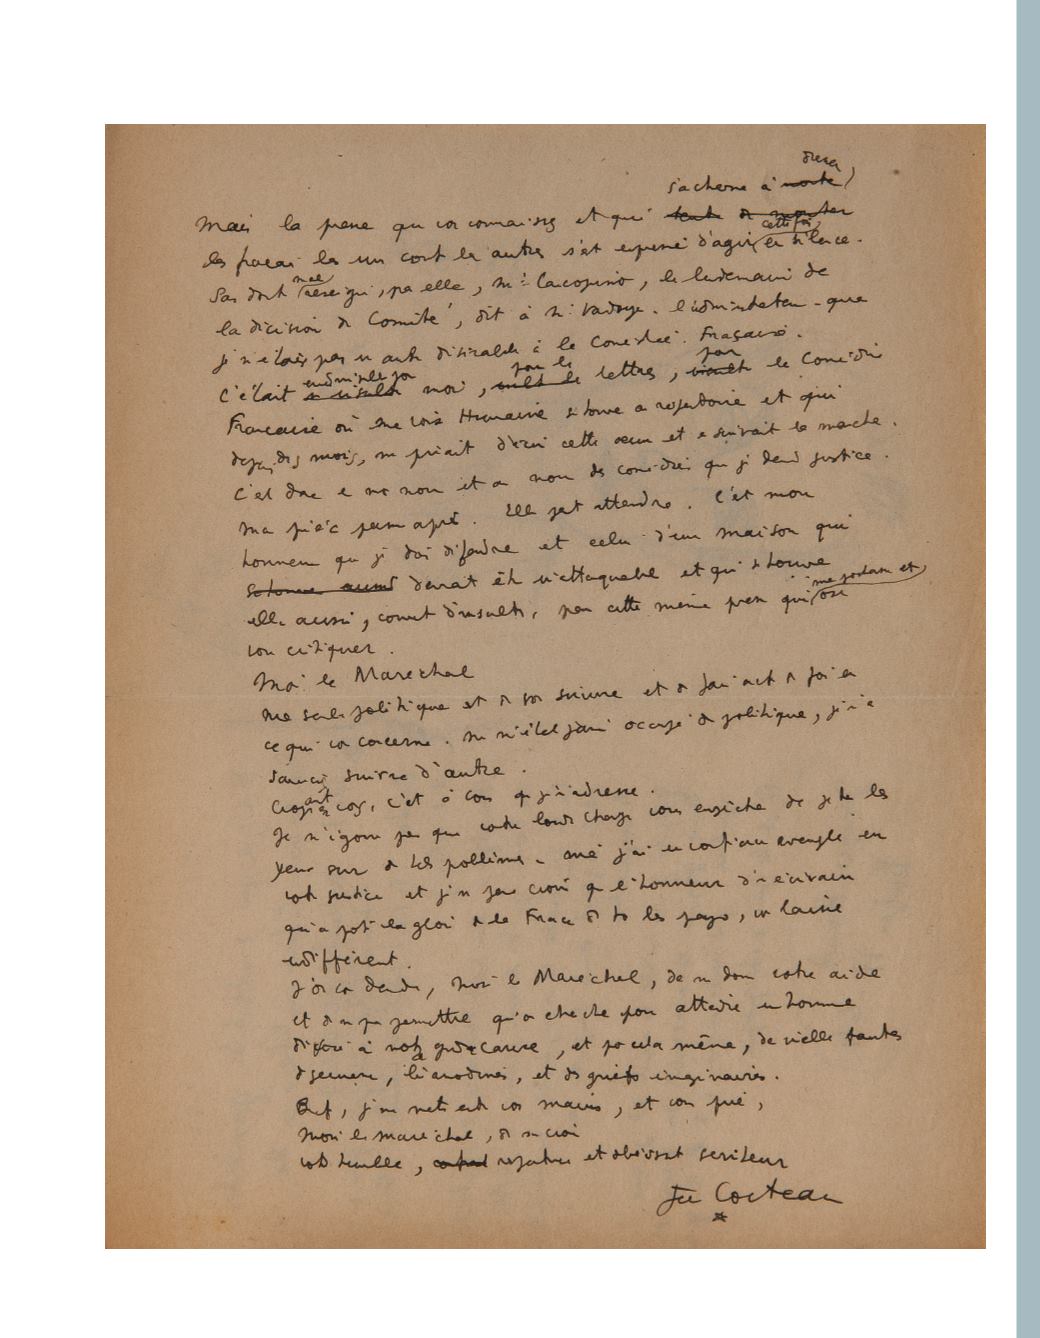 dresser
s'acharne à
Mais la presse que vous connaissez et qui
les français les uns contre les autres s'est empressé d'agir cette fois en silence.
Sans doute mal renseigné, par elle, Mr Carcopino, le lendemain de
la décision du Comité, dit à Mr Vaudoyer - l'administrateur - que
je n'étais pas un auteur désirable à la Comédie Française.
C'était inadmissible pour moi, pour les lettres, pour la Comédie
Française où ma Voix Humaine se trouve au répertoire et qui
depuis des mois, me priait d'écrire cette œuvre et en suivait la marche.
C'est donc en mon nom et au nom des comédiens que je demande justice.
Ma pièce passe après. Elle peut attendre. C'est mon
honneur que je dois défendre et celui d'une maison qui
devrait être inattaquable et qui se trouve
elle aussi, couverte d'insultes, par cette même presse qui ose
vous critiquer.
Monsieur le Maréchal
ma seule politique est de vous suivre et de faire acte de foi en
ce qui vous concerne. Je ne m'étais jamais occupé de politique, je n'en
saurais suivre d'autre.
c'est à vous que je m'adresse.
Je n'ignore pas que votre lourde charge vous empêche de jeter les
yeux sur de tels problèmes - mais j'ai une confiance aveugle en
votre justice et je ne peux croire que l'honneur d'un écrivain
qui a porté la gloire de la France dans tous les pays, vous laisse
indifférent.
J'ose vous demander, Monsieur le Maréchal, de me donner votre aide
et de ne pas permettre qu'on cherche pour atteindre un homme
dévoué à notre grande cause, et pour cela même, de vieilles fautes
de jeunesse, et des griefs imaginaires.
Bref, je me mets entre vos mains, et vous prie,
Monsieur le maréchal, de me croire
votre humble, respectueux et obéissant serviteur
Jean Cocteau
*